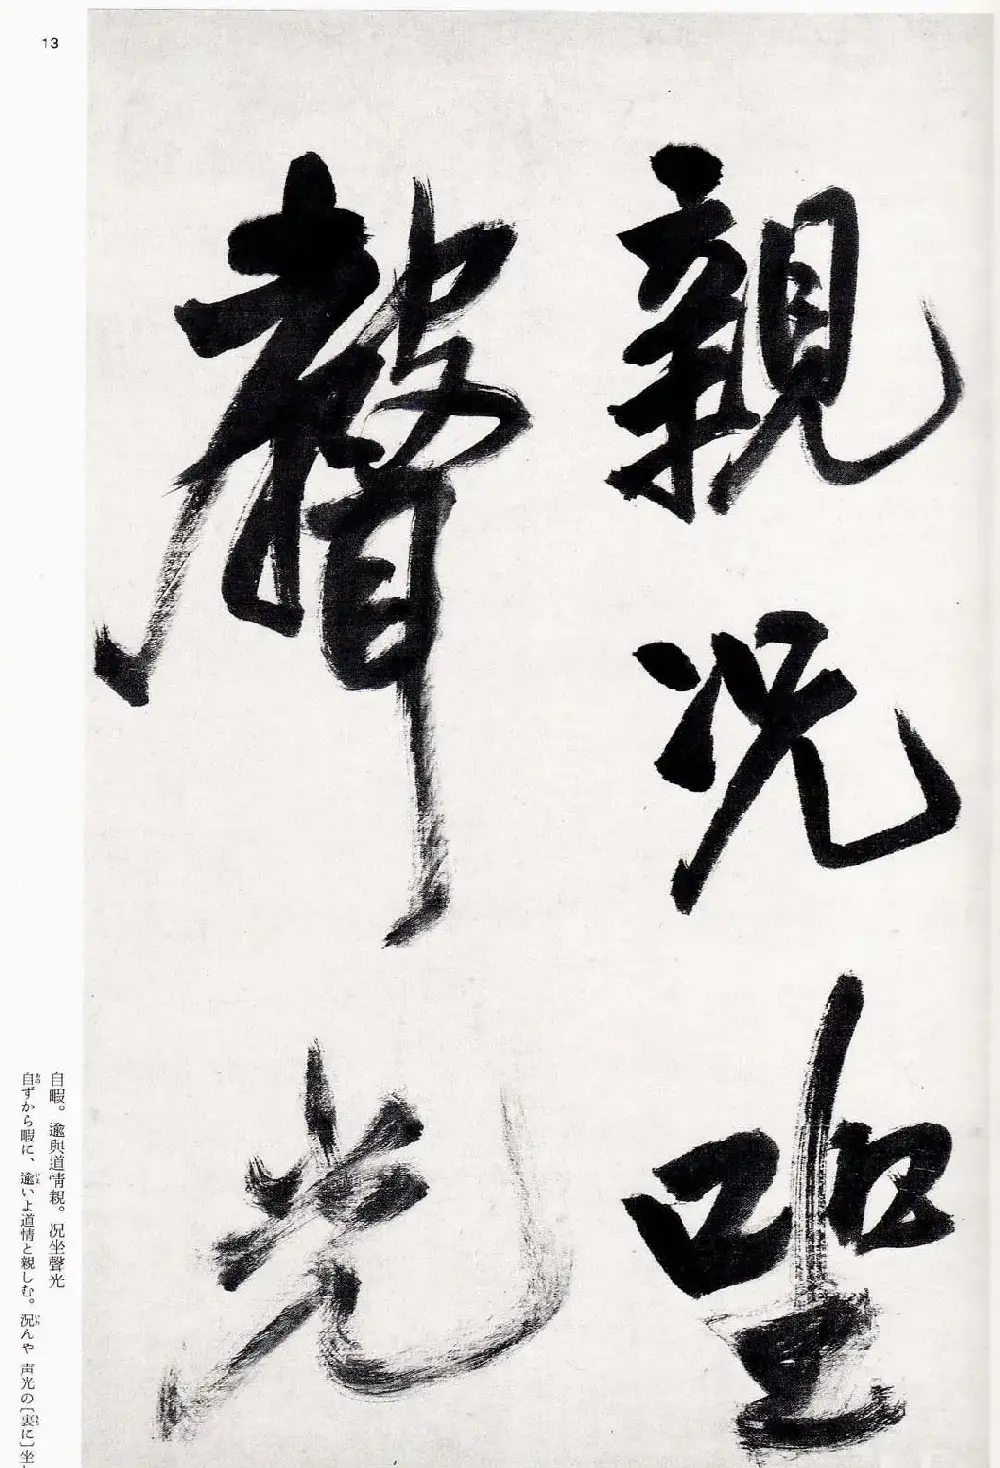 13
親況坐
聲光
自暇。邀與道情親。況坐聲光
自ずから暇に、いよいよ道情と親しむ。況んや 声光の〔裏に〕坐